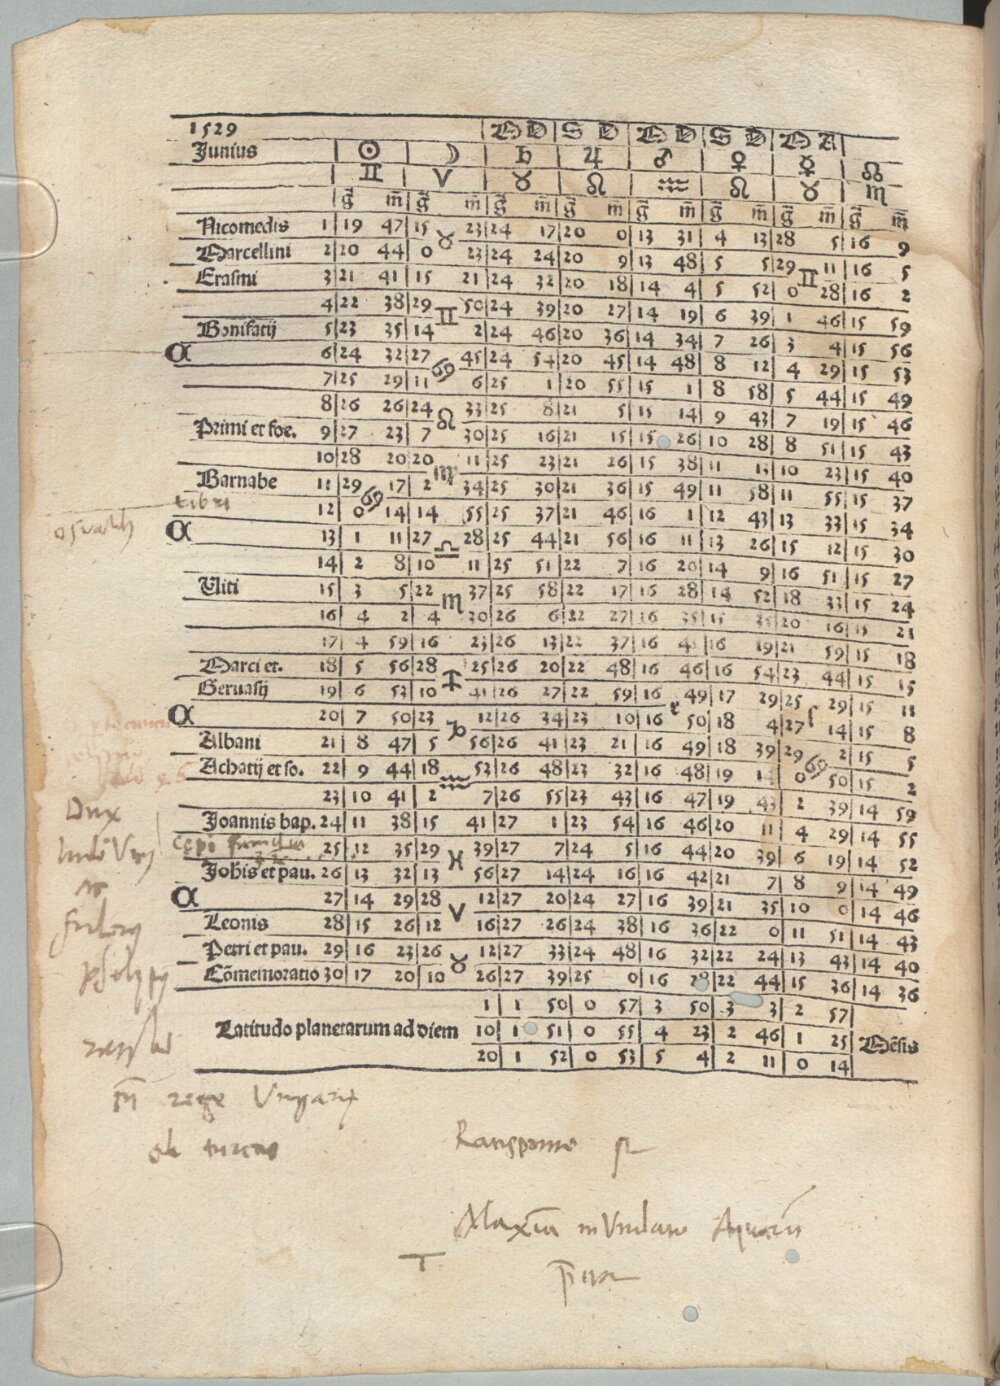 1529 O D S D O D S D O A
Junius ☉ ☽ ♄ ♃ ♂ ♀ ☿ ☊
♊ ♈ ♉ ♌ ♒ ♌ ♉ ♏
g̃ m̃ g̃ m̃ g̃ m̃ g̃ m g̃ m̃ g̃ m̃ g̃ m̃ g̃ m̃
Nicomedis 1 19 47 15 ♉ 23 24 17 20 0 13 31 4 13 28 5 16 9
Marcellini 2 20 44 0 23 24 24 20 9 13 48 5 5 29 ♊ 11 16 5
Erasmi 3 21 41 15 21 24 32 20 18 14 4 5 52 0 28 16 2
4 22 38 29 ♊ 50 24 39 20 27 14 19 6 39 1 46 15 59
Bonifatij 5 23 35 14 2 24 46 20 36 14 34 7 26 3 4 15 56
a 6 24 32 27 ♋ 45 24 54 20 45 14 48 8 12 4 29 15 53
7 25 29 11 6 25 1 20 55 15 1 8 58 5 44 15 49
8 26 26 24 ♌ 33 25 8 21 5 15 14 9 43 7 19 15 46
Primi et foe. 9 27 23 7 30 25 16 21 15 15 26 10 28 8 51 15 43
10 28 20 20 ♍ 11 25 23 21 26 15 38 11 13 10 23 15 40
Barnabe 11 29 ♋ 17 2 34 25 30 21 36 15 49 11 58 11 55 15 37
12 0 14 14 55 25 37 21 46 16 1 12 43 13 33 15 34
a 13 1 11 27 ♎ 28 25 44 21 56 16 11 13 26 15 12 15 30
14 2 8 10 11 25 51 22 7 16 20 14 9 16 51 15 27
Viti 15 3 5 22 ♏ 37 25 58 22 17 16 28 14 52 18 33 15 24
16 4 2 4 30 26 6 22 27 16 35 15 35 20 16 15 21
17 4 59 16 23 26 13 22 37 16 16 19 21 59 15 18
Marci et. 18 5 56 28 ♐ 25 26 20 22 48 16 46 16 54 23 44 15 15
Gervasij 19 6 53 10 41 26 27 22 59 16 49 17 29 25 29 15 11
a 20 7 50 23 ♑ 12 26 34 23 10 16 50 18 4 27 14 15 8
Albani 21 8 47 5 56 26 41 23 21 16 49 18 39 29 ♋ 2 15 5
Achatij et so. 22 9 44 18 ♒ 53 26 48 23 32 16 48 19 14 0 50 15 2
23 10 41 2 7 26 55 23 43 16 47 19 43 2 39 14 59
Joannis bap. 24 11 38 15 41 27 1 23 54 16 46 20 11 4 29 14 55
25 12 35 29 ♓ 39 27 7 24 5 16 44 20 39 6 19 14 52
Johis et pau. 26 13 32 13 56 27 14 24 16 16 42 21 7 8 9 14 49
a 27 14 29 28 ♈ 12 27 20 24 27 16 39 21 35 10 0 14 46
Leonis 28 15 26 12 16 27 26 24 38 16 36 22 0 11 51 14 43
Petri et pau. 29 16 23 26 ♉ 12 27 33 24 48 16 32 22 24 13 43 14 40
Cõmemoratio 30 17 20 10 26 27 39 25 0 16 28 22 44 15 36 14 36
1 1 50 0 57 3 50 3 3 2 57
Latitudo planetarum ad diem 10 1 51 0 55 4 23 2 46 1 25 Mẽsis
20 1 52 0 53 5 4 2 11 0 14
Dux
rege Ungarie
ob turcas